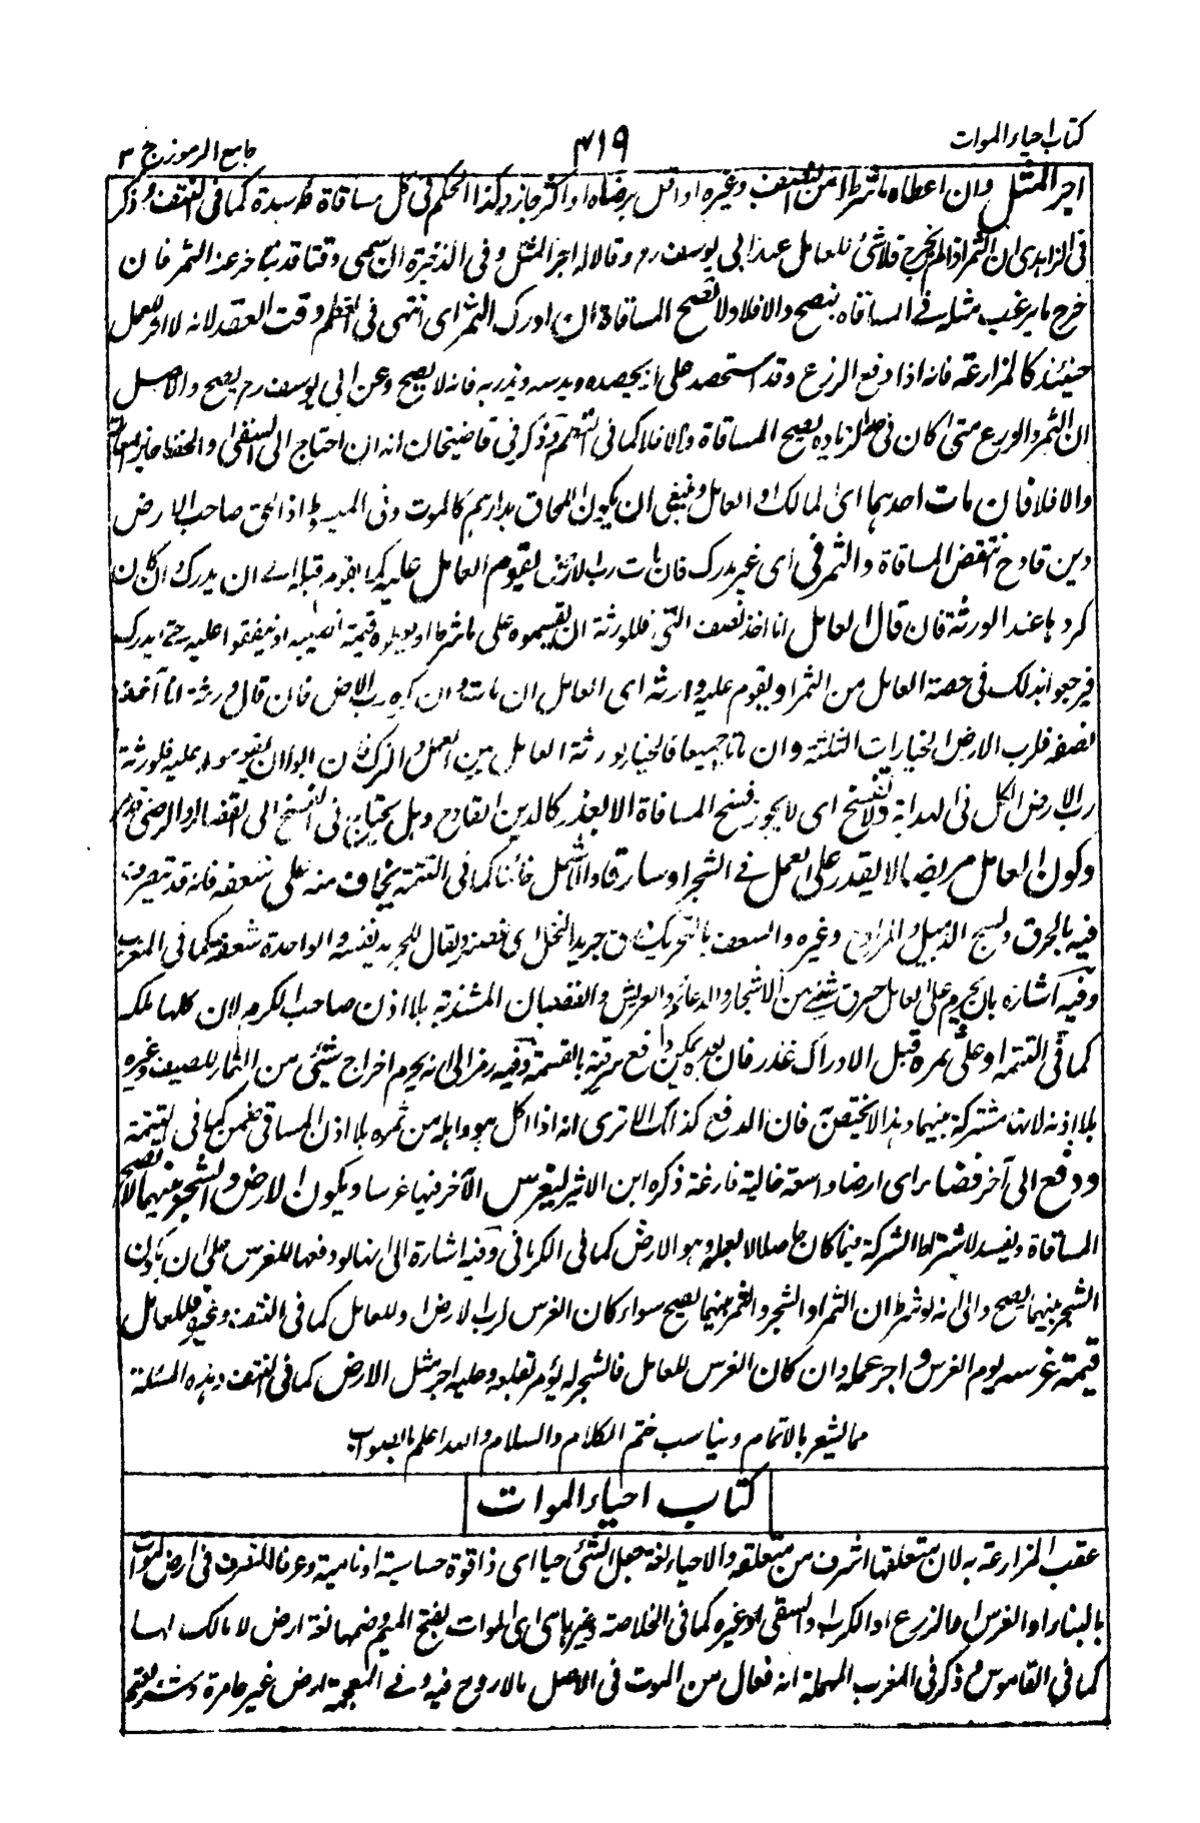 كتاب احياء الموات
٤١٩
جامع الرموز ج ٣
اجر المثل وان اعطاه ما شرط له من النصف وغيره او اقل برضاه او اكثر جاز وكذا الحكم فى كل مساقاة فاسدة كما فى النتف وذكر
فى الزاهدى ان الثمر اذا لم يخرج فلا شئ للعامل عند ابى يوسف رح وقالا له اجر المثل وفى الذخيرة ان سمى وقتا قد يتأخر عنه الثمر فان
خرج ما يرغب مثله فى المساقاه يصح والا فلا ولا تصح المساقاة ان ادرك الثمر اى انتهى فى العظم وقت العقد لانه لا اثر للعمل
حينئذ كالمزارعة فانه اذا دفع الزرع وقد استحصد على ان يحصده ويدرسه ويذريه فانه لا يصح وعن ابى يوسف رح يصح والاصل
ان الثمر والورع متى كان فى حد الزياده يصح المساقاة والا فلا كما فى وذكر فى قاضيخان انه ان احتاج الى السقى والحفظ جاز
والا فلا فان مات احدهما اى المالك او العامل وينبغى ان يكون اللحاق بدارهم كالموت وفى المبسوط اذا لحق صاحب الارض
دين فادح تنتقض المساقاة والثمر فى اى غير مدرك فان مات رب الارض يقوم العامل عليه كما يقوم قبله الى ان يدرك وان كان
كره ها عند الورثة فان قال العامل انا اخذ نصف التى فللورثة ان يقسموه على ما شرط او يعطوه قيمة نصيبه او ينفقوا عليه حتى يدرك
فيرجعوا بذلك فى حصة العامل من الثمر او يقوم عليه وارثه اى العامل ان مات وان كره رب الارض فان قال ورثة انا آخذ
نصفه فلرب الارض الخيارات الثلثة وان ماتا جميعا فالخيار لورثة العامل بين العمل والترك فان ابوا ان يقوموا عليه فلورثة
رب الارض الكل فى الهداية ولا تفسخ اى لا يجوز فسخ المساقاة الا بعذر كالدين الفادح وهل يحتاج فى الفسخ الى القضاء او الرضى
وكون العامل مريضا لا يقدر على العمل فى الشجر او سارقا والاشمل خائنا كما فى التتمة يخاف منه على سعفه فانه قد يتصرف
فيه بالحرق ونسج الزنبيل والمراوح وغيره والسعف بالتحريك من جريد النخل اى غصنه ويقال للجريد نفسه والواحدة سعفة كما فى المغرب
وفيه اشارة بان يحرم على العامل حرق شئ من الاشجار والدعائم والعرش والقضبان المشذبة بلا اذن صاحب الكرم لان كلها ملكه
كما فى التتمه او على ثمره قبل الادراك غدر فان بعده يمكن دفع سرقته بالقسمة وفيه رمز الى انه يحرم اخراج شئ من الثمار للضيف وغيره
بلا اذنه لانها مشتركة بينهما وهذا لا يختص فان الدفع كذلك الا ترى انه اذا اكل هو واهله من ثمره بلا اذن المساقى ضمن كما فى التتمة
ودفع الى آخر فضاء اى ارضا واسعة خالية فارغة ذكره ابن الاثير ليغرس الآخر فيها غرسا ويكون الارض والشجر بينهما لا تصح
المساقاة ويفسد لاشتراط الشركة فيما كان حاصلا لا بعمله وهو الارض كما فى الكرمانى وفيه اشارة الى انها لو دفعها للغرس على ان يكون
الشجر بينهما يصح والى انه لو شرط ان الثمر او الشجر والثمر بينهما يصح سواء كان الغرس لرب الارض او للعامل كما فى النتف وغيره وللعامل
قيمة غرسه يوم الغرس واجر عمله وان كان الغرس للعامل فالشجر له يؤمر بقلعه وعليه اجر مثل الارض كما فى النتف وهذه المسئلة
مما يشعر بالاتمام ويناسب ختم الكلام والسلام والله اعلم بالصواب
كتاب احياء الموات
عقب المزارعة به لان متعلقها اشرف من متعلقه والاحياء لغة جعل الشئ حيا اى ذا قوة حساسة او نامية وعرفا للتصرف فى ارض الموات
بالبناء او الغرس او الزرع او الكراب والسقى او غيره كما فى الخلاصة وغيرها اى الموات بفتح الميم وضمها لغة ارض لا مالك لها
كما فى القاموس وذكر فى المغرب المهملة انه فعال من الموت فى الاصل ما لا روح فيه وفى المعجمة ارض غير عامرة